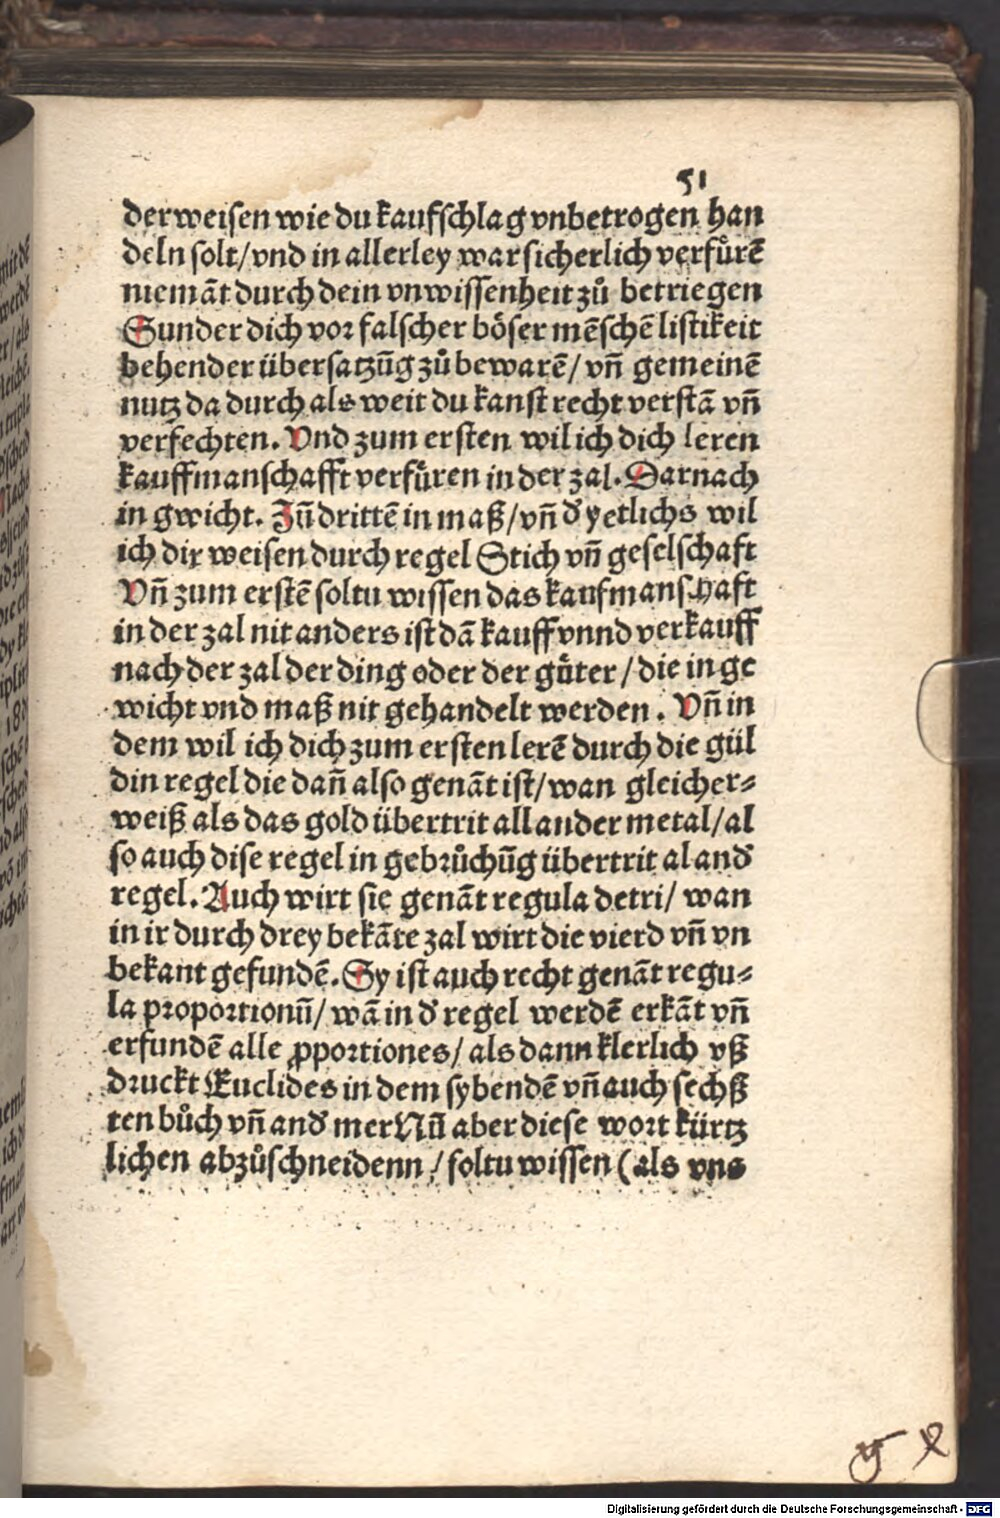 51
der weisen wie du kaufschlag vnbetrogen han
deln solt/vnd in allerley war sicherlich verfuͤrē
niemāt durch dein vnwissenheit zů betriegen
Sunder dich vor falscher böser mēschē listikeit
behender übersatzūg zů bewarē/ vn̄ gemeinē
nutz da durch als weit du kanst recht verstā vn̄
verfechten. Vnd zum ersten wil ich dich leren
kauffmanschafft verfuͤren in der zal. Darnach
in gwicht. Zū drittē in maß/vn̄ d̕ yetlichs wil
ich dir weisen durch regel Stich vn̄ geselschaft
Vn̄ zum erstē soltu wissen das kaufmanschaft
in der zal nit anders ist dā kauff vnnd verkauff
nach der zal der ding oder der guͤter/die in ge
wicht vnd maß nit gehandelt werden. Vn̄ in
dem wil ich dich zum ersten lerē durch die gül
din regel die dan̄ also genāt ist/wan gleicher⸗
weiß als das gold übertrit all ander metal/al
so auch dise regel in gebrůchūg übertrit al and̕
regel. Auch wirt sie genāt regula detri/ wan
in ir durch drey bekāte zal wirt die vierd vn̄ vn
bekant gefundē. Sy ist auch recht genāt regu⸗
la proportionū/ wā in d̕ regel werdē erkāt vn̄
erfundē alle ꝓportiones/ als dann klerlich vß
druckt Euclides in dem sybendē vn̄ auch sechß
ten bůch vn̄ and̕ mer Nū aber diese wort kürtz
lichen abzůschneidenn/ soltu wissen (als vns
Digitalisierung gefördert durch die Deutsche Forschungsgemeinschaft - DFG